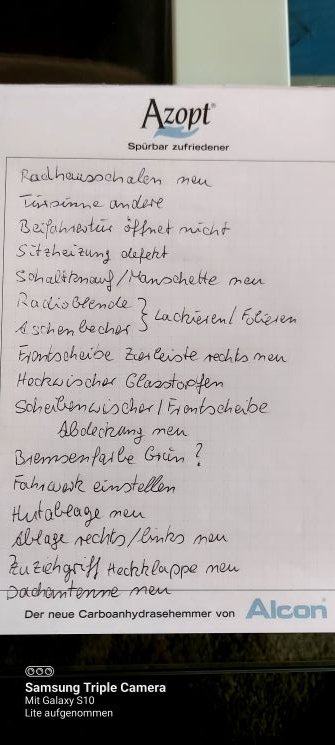 Azopt®
Spürbar zufriedener
Radhausschalen neu
Türsinne andere
Beifahrertür öffnet nicht
Sitzheizung defekt
Schaltknauf/Manschette neu
Radioblende } Lackieren/Folieren
Aschenbecher
Frontscheibe Zierleiste rechts neu
Heckwischer Glasstopfen
Scheibenwischer/Frontscheibe
Abdeckung neu
Bremsenfarbe Grün?
Fahrwerk einstellen
Hutablage neu
Ablage rechts/links neu
Zuziehgriff Heckklappe neu
Dachantenne neu
Der neue Carboanhydrasehemmer von Alcon®
Samsung Triple Camera
Mit Galaxy S10
Lite aufgenommen